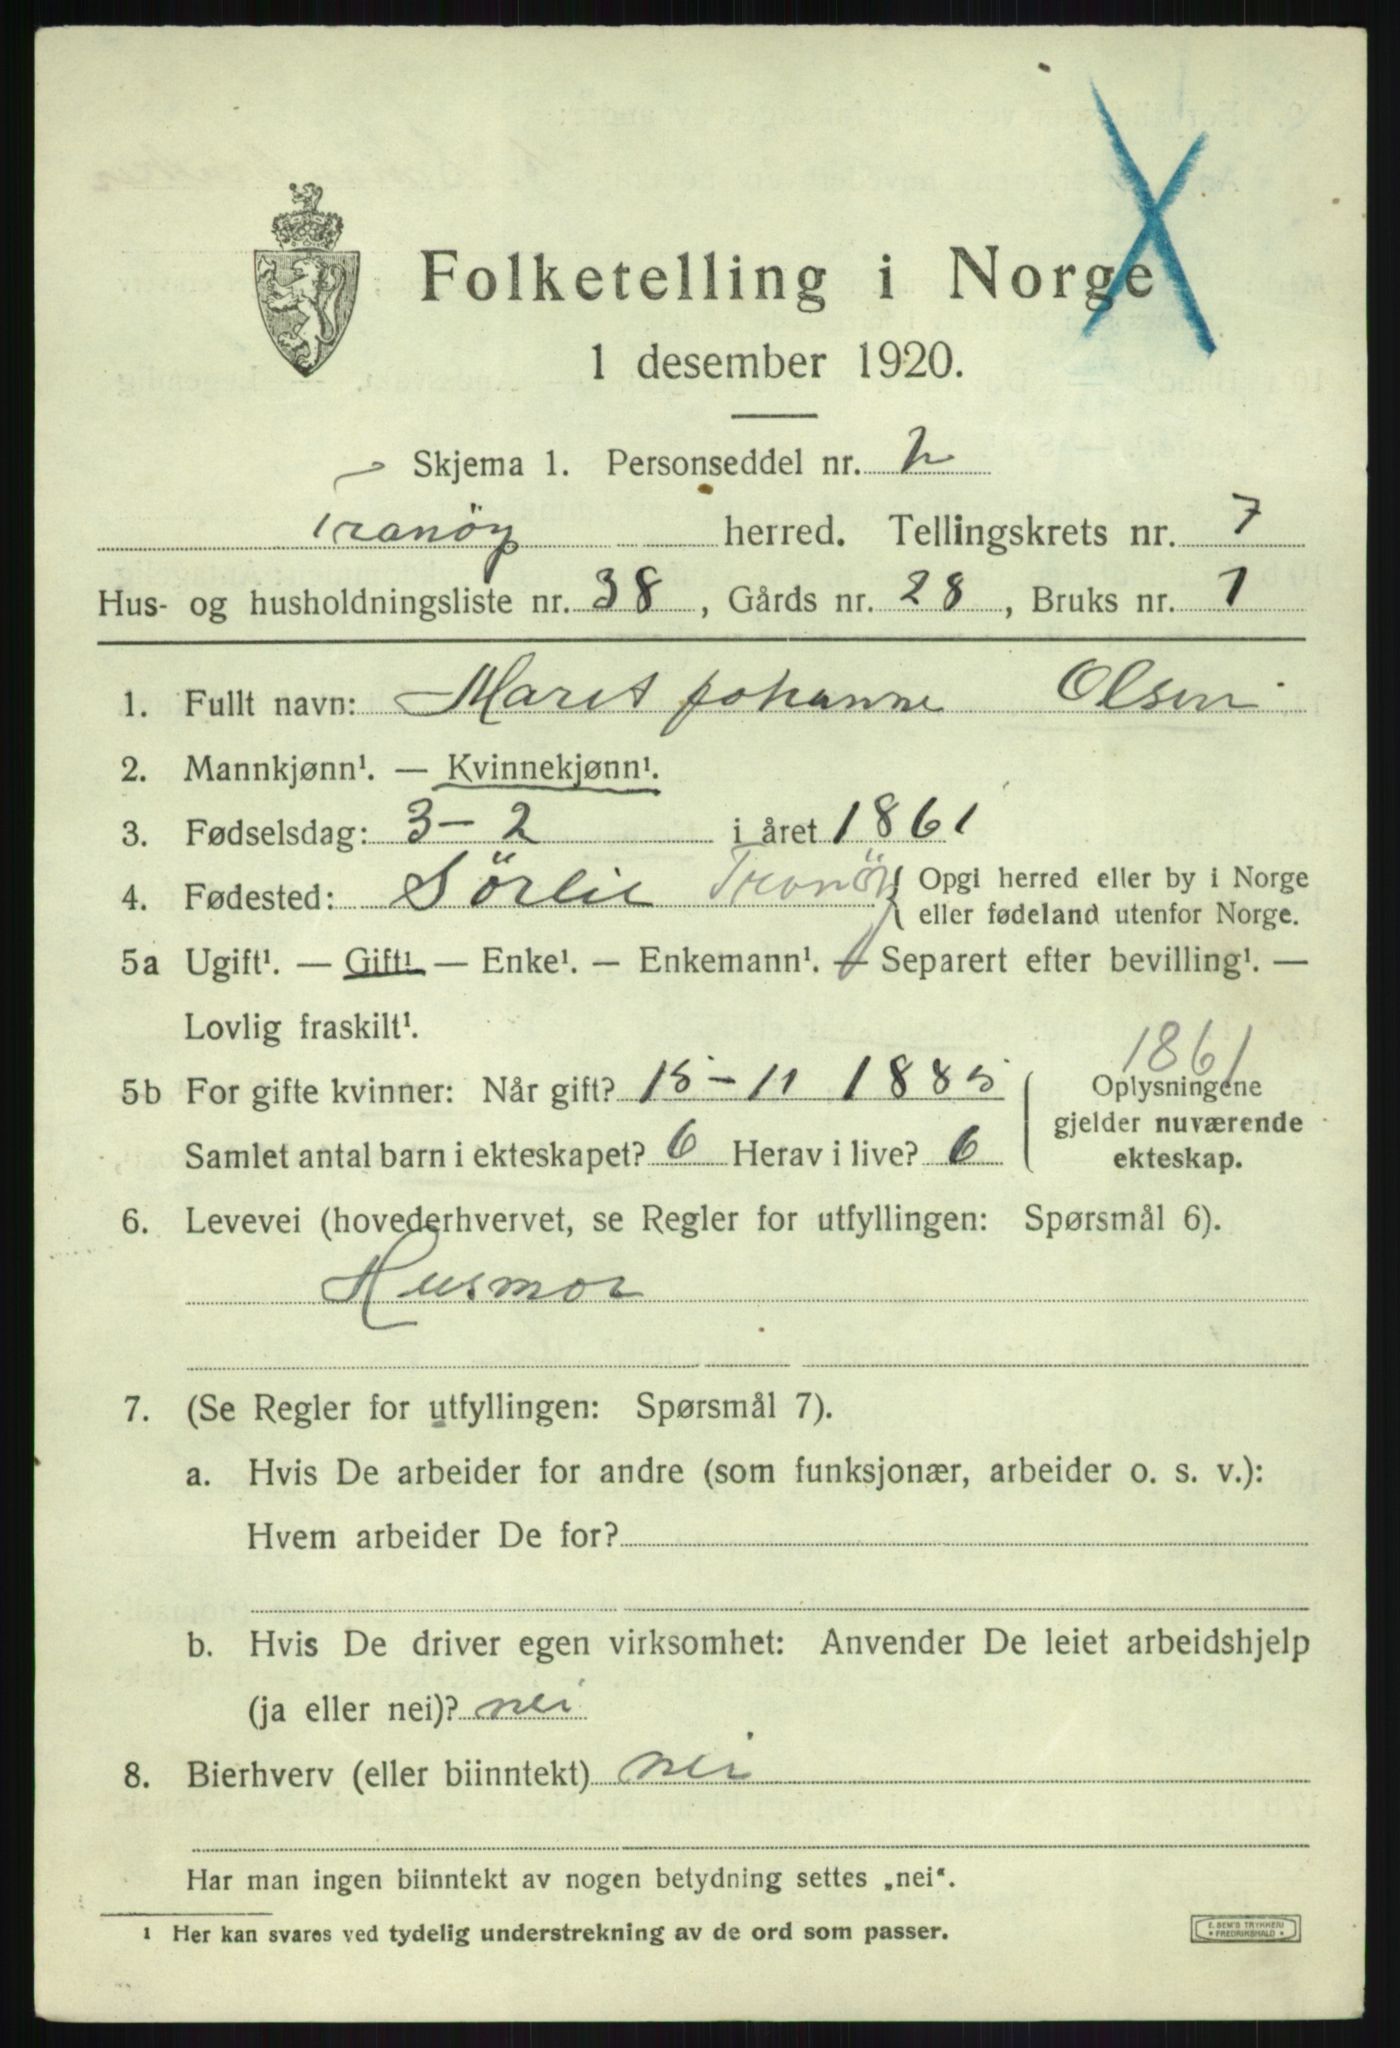 Folketelling i Norge
1 desember 1920.
Skjema 1. Personseddel nr. 2
Tranöy herred. Tellingskrets nr. 7
Hus- og husholdningsliste nr. 38, Gårds nr. 28, Bruks nr. 1
1. Fullt navn: Marit Johanne Olsen
2. Mannkjønn¹. — Kvinnekjønn¹.
3. Fødselsdag: 3-2 i året 1861
4. Fødested: Sörlie Tranöy { Opgi herred eller by i Norge
eller fødeland utenfor Norge.
5a Ugift¹. — Gift¹ — Enke¹. — Enkemann¹. — Separert efter bevilling¹. —
Lovlig fraskilt¹.
1861
5b For gifte kvinner: Når gift? 15-11 1885 Oplysningene
gjelder nuværende
Samlet antal barn i ekteskapet? 6 Herav i live? 6 ekteskap.
6. Levevei (hovederhvervet, se Regler for utfyllingen: Spørsmål 6).
Husmor
7. (Se Regler for utfyllingen: Spørsmål 7).
a. Hvis De arbeider for andre (som funksjonær, arbeider o. s. v.):
Hvem arbeider De for?
b. Hvis De driver egen virksomhet: Anvender De leiet arbeidshjelp
(ja eller nei)? nei
8. Bierhverv (eller biinntekt) nei
Har man ingen biinntekt av nogen betydning settes „nei“.
¹ Her kan svares ved tydelig understrekning av de ord som passer.
E. SEM'S TRYKKERI
FREDRIKSHALD